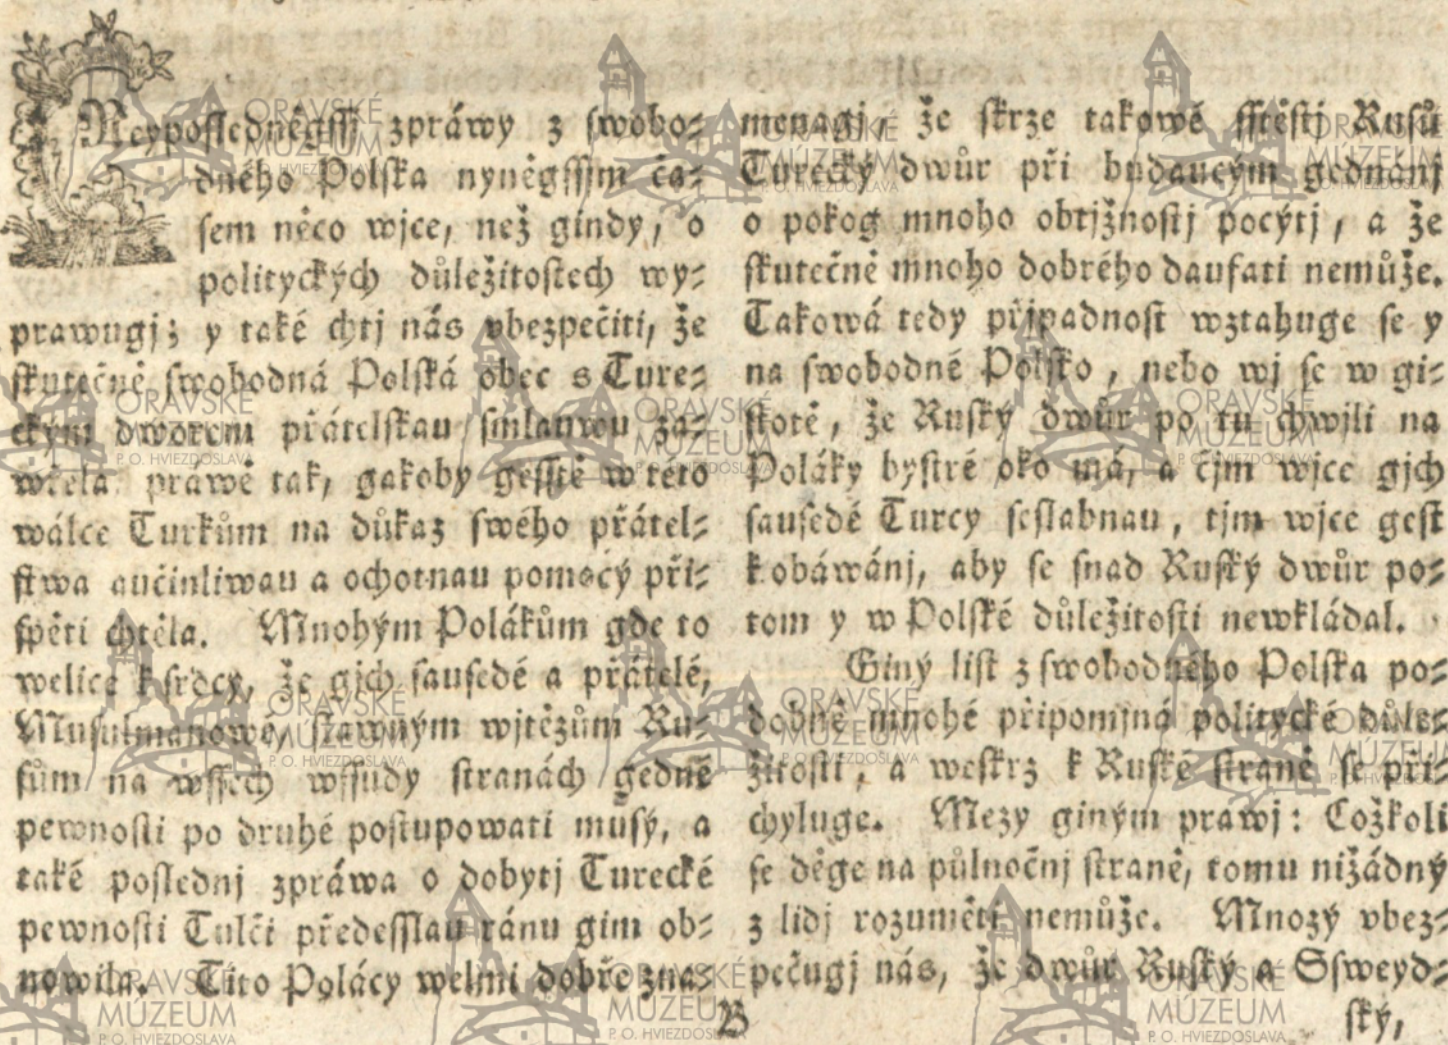 Neyposledněgssj zpráwy z swobo-
dného Polska nyněgssjm ča-
sem něco wjce, než gindy, o
polityckých důležitostech wy-
prawugj; y také chtj nás vbezpečiti, že
skutečně swobodná Polská obec s Ture-
ckým dworem přátelskau smlauwu za-
wřela práwě tak, gakoby gesstě w této
wálce Turkům na důkaz swého přátel-
stwa aučinliwau a ochotnau pomocý při-
spěti chtěla. Mnohým Polákům gde to
welice k srdcy, že gjch sausedé a přátelé,
Musulmanowé, slawným wjtězům Ru-
sům na wssech wssudy stranách gedné
pewnosti po druhé postupowati musý, a
také poslednj zpráwa o dobytj Turecké
pewnosti Tulči předesslau ránu gim ob-
nowila. Tito Polácy welmi dobře zna-
menagj, že skrze takowé sstěstj Rusů
Turecký dwůr při budaucým gednánj
o pokog mnoho obtjžnostj pocýtj, a že
skutečně mnoho dobrého daufati nemůže.
Taková tedy přjpadnost wztahuge se y
na swobodné Polsko, nebo wj se w gi-
stotě, že Ruský dwůr po tu chwjli na
Poláky bystré oko má, a čjm wjce gjch
sausedé Turcy seslabnau, tjm wjce gest
k obáwánj, aby se snad Ruský dwůr po-
tom y w Polské důležitosti newkládal.
Giný list z swobodného Polska po-
dobně mnohé připomjná politycké důle-
žitosti, a weskrz k Ruské straně se při-
chyluge. Mezy giným prawj: Cožkoli
se děge na půlnočnj straně, tomu nižádný
z lidj rozuměti nemůže. Mnozý vbez-
pečugj nás, že dwůr Ruský a Ssweyd-
B
ský,
ORAVSKÉ
MÚZEUM
P. O. HVIEZDOSLAVA